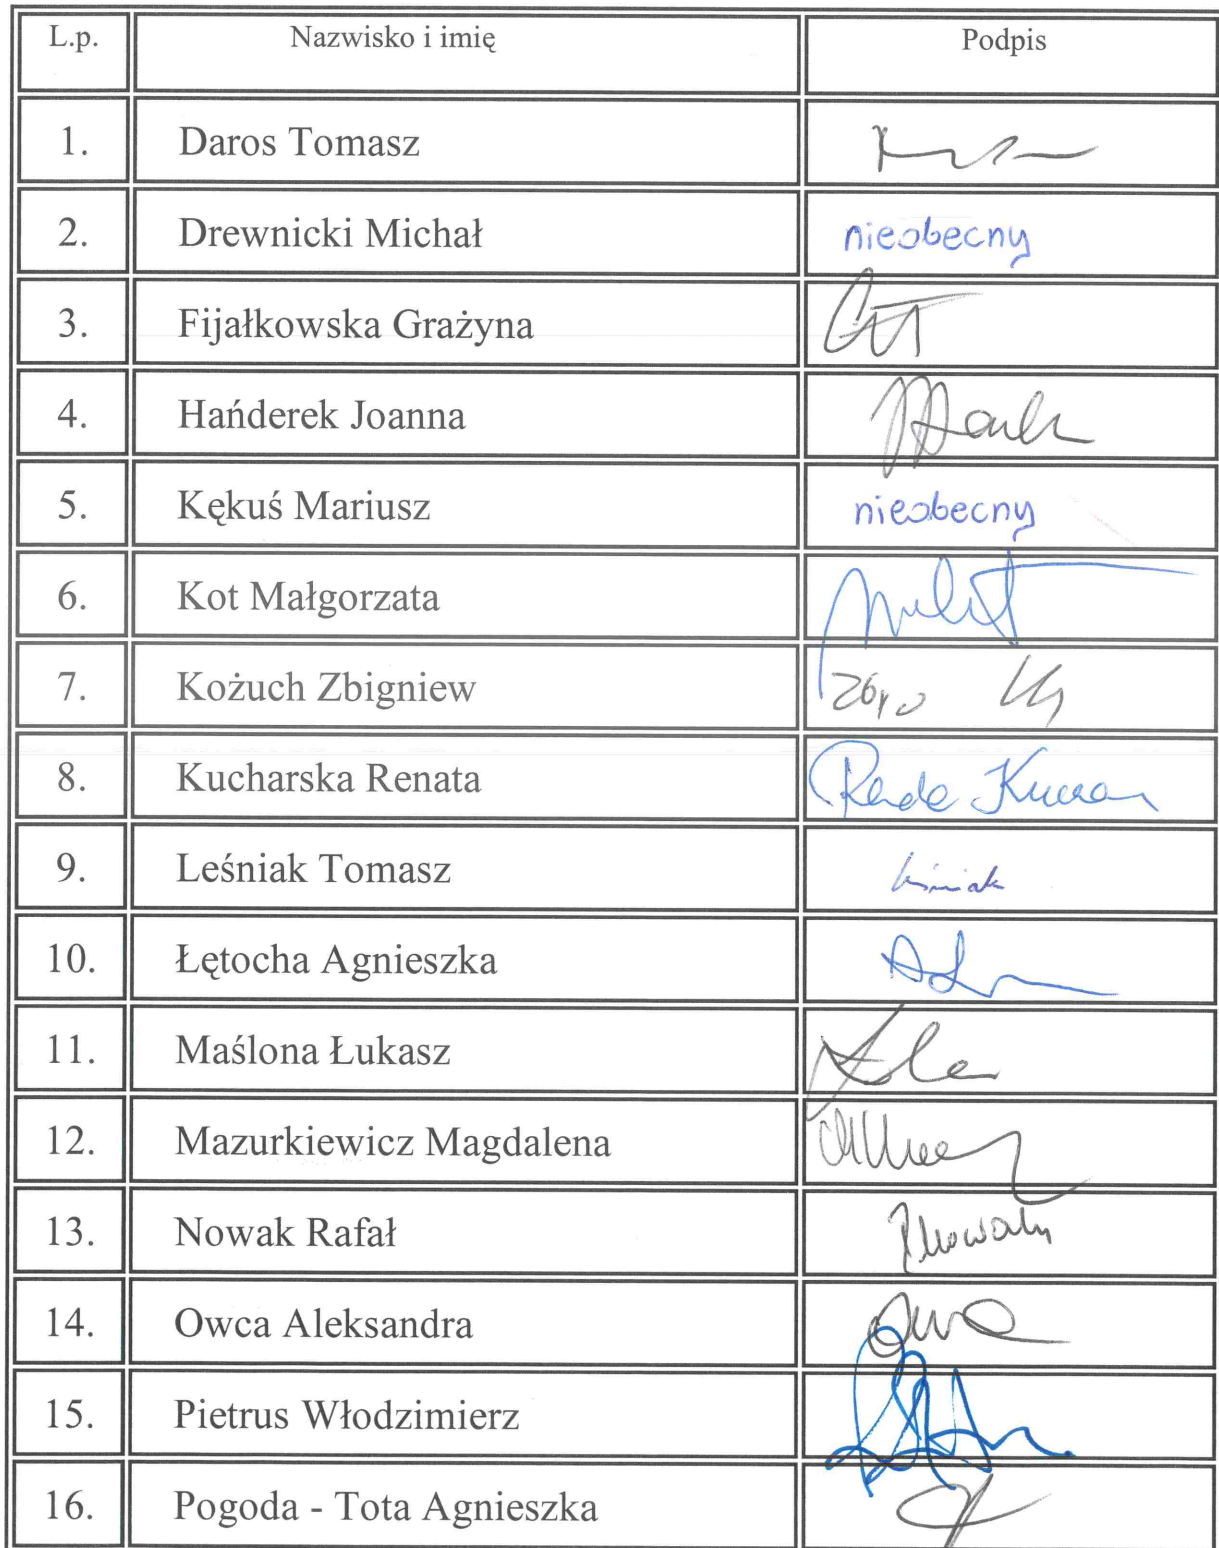 L.p. Nazwisko i imię Podpis
1. Daros Tomasz
2. Drewnicki Michał nieobecny
3. Fijałkowska Grażyna
4. Hańderek Joanna
5. Kękuś Mariusz nieobecny
6. Kot Małgorzata
7. Kożuch Zbigniew
8. Kucharska Renata
9. Leśniak Tomasz
10. Łętocha Agnieszka
11. Maślona Łukasz
12. Mazurkiewicz Magdalena
13. Nowak Rafał
14. Owca Aleksandra
15. Pietrus Włodzimierz
16. Pogoda - Tota Agnieszka